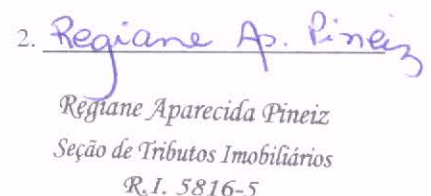 2. Regiane Ap. Pineiz
Regiane Aparecida Pineiz
Seção de Tributos Imobiliários
R.I. 5816-5